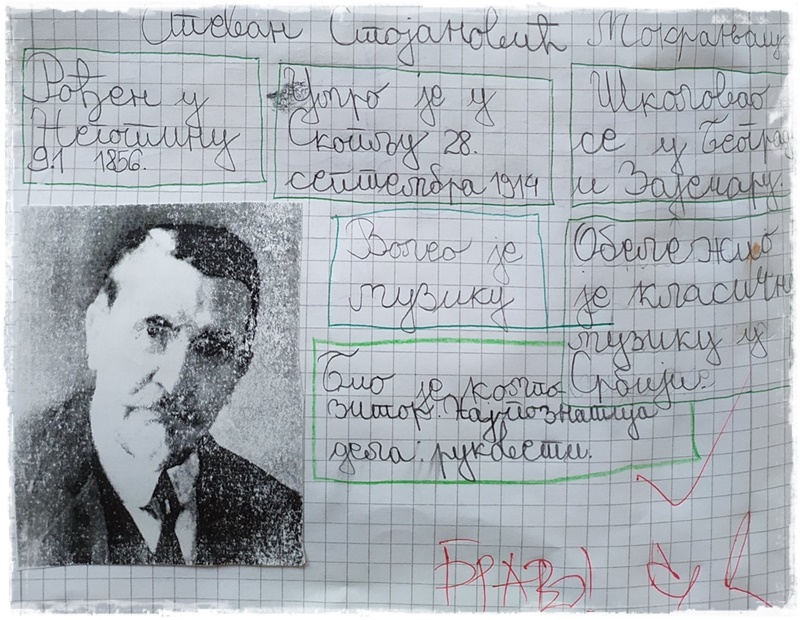 Стеван Стојановић Мокрањац
Рођен у
Неготину
9.1 1856.
Умро је у
Скопљу 28.
септембра 1914
Школовао
се у Београ
и Зајечару.
Волео је
музику
Обележио
је класичн
музику у
Србији.
Био је компо
зитор. Најпознатија
дела: руковети.
БРАВО